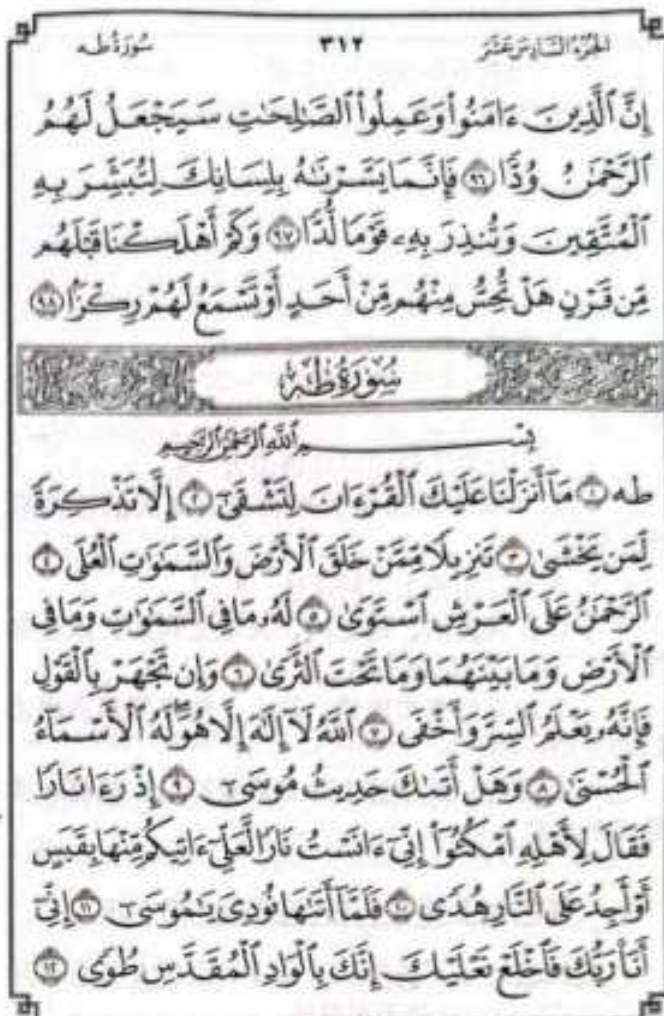 سُورَةُ طه ٣١٢ الجُزْءُ السَّادِسَ عَشَرَ
إِنَّ ٱلَّذِينَ ءَامَنُوا۟ وَعَمِلُوا۟ ٱلصَّٰلِحَٰتِ سَيَجْعَلُ لَهُمُ
ٱلرَّحْمَٰنُ وُدًّا ٩٦ فَإِنَّمَا يَسَّرْنَٰهُ بِلِسَانِكَ لِتُبَشِّرَ بِهِ
ٱلْمُتَّقِينَ وَتُنذِرَ بِهِۦ قَوْمًا لُّدًّا ٩٧ وَكَمْ أَهْلَكْنَا قَبْلَهُم
مِّن قَرْنٍ هَلْ تُحِسُّ مِنْهُم مِّنْ أَحَدٍ أَوْ تَسْمَعُ لَهُمْ رِكْزًۢا ٩٨
سُورَةُ طه
بِسْمِ ٱللَّهِ ٱلرَّحْمَٰنِ ٱلرَّحِيمِ
طه ١ مَآ أَنزَلْنَا عَلَيْكَ ٱلْقُرْءَانَ لِتَشْقَىٰٓ ٢ إِلَّا تَذْكِرَةً
لِّمَن يَخْشَىٰ ٣ تَنزِيلًا مِّمَّنْ خَلَقَ ٱلْأَرْضَ وَٱلسَّمَٰوَٰتِ ٱلْعُلَى ٤
ٱلرَّحْمَٰنُ عَلَى ٱلْعَرْشِ ٱسْتَوَىٰ ٥ لَهُۥ مَا فِى ٱلسَّمَٰوَٰتِ وَمَا فِى
ٱلْأَرْضِ وَمَا بَيْنَهُمَا وَمَا تَحْتَ ٱلثَّرَىٰ ٦ وَإِن تَجْهَرْ بِٱلْقَوْلِ
فَإِنَّهُۥ يَعْلَمُ ٱلسِّرَّ وَأَخْفَى ٧ ٱللَّهُ لَآ إِلَٰهَ إِلَّا هُوَۖ لَهُ ٱلْأَسْمَآءُ
ٱلْحُسْنَىٰ ٨ وَهَلْ أَتَىٰكَ حَدِيثُ مُوسَىٰٓ ٩ إِذْ رَءَا نَارًا
فَقَالَ لِأَهْلِهِ ٱمْكُثُوٓا۟ إِنِّىٓ ءَانَسْتُ نَارًا لَّعَلِّىٓ ءَاتِيكُم مِّنْهَا بِقَبَسٍ
أَوْ أَجِدُ عَلَى ٱلنَّارِ هُدًى ١٠ فَلَمَّآ أَتَىٰهَا نُودِىَ يَٰمُوسَىٰٓ ١١ إِنِّىٓ
أَنَا۠ رَبُّكَ فَٱخْلَعْ نَعْلَيْكَ إِنَّكَ بِٱلْوَادِ ٱلْمُقَدَّسِ طُوًى ١٢